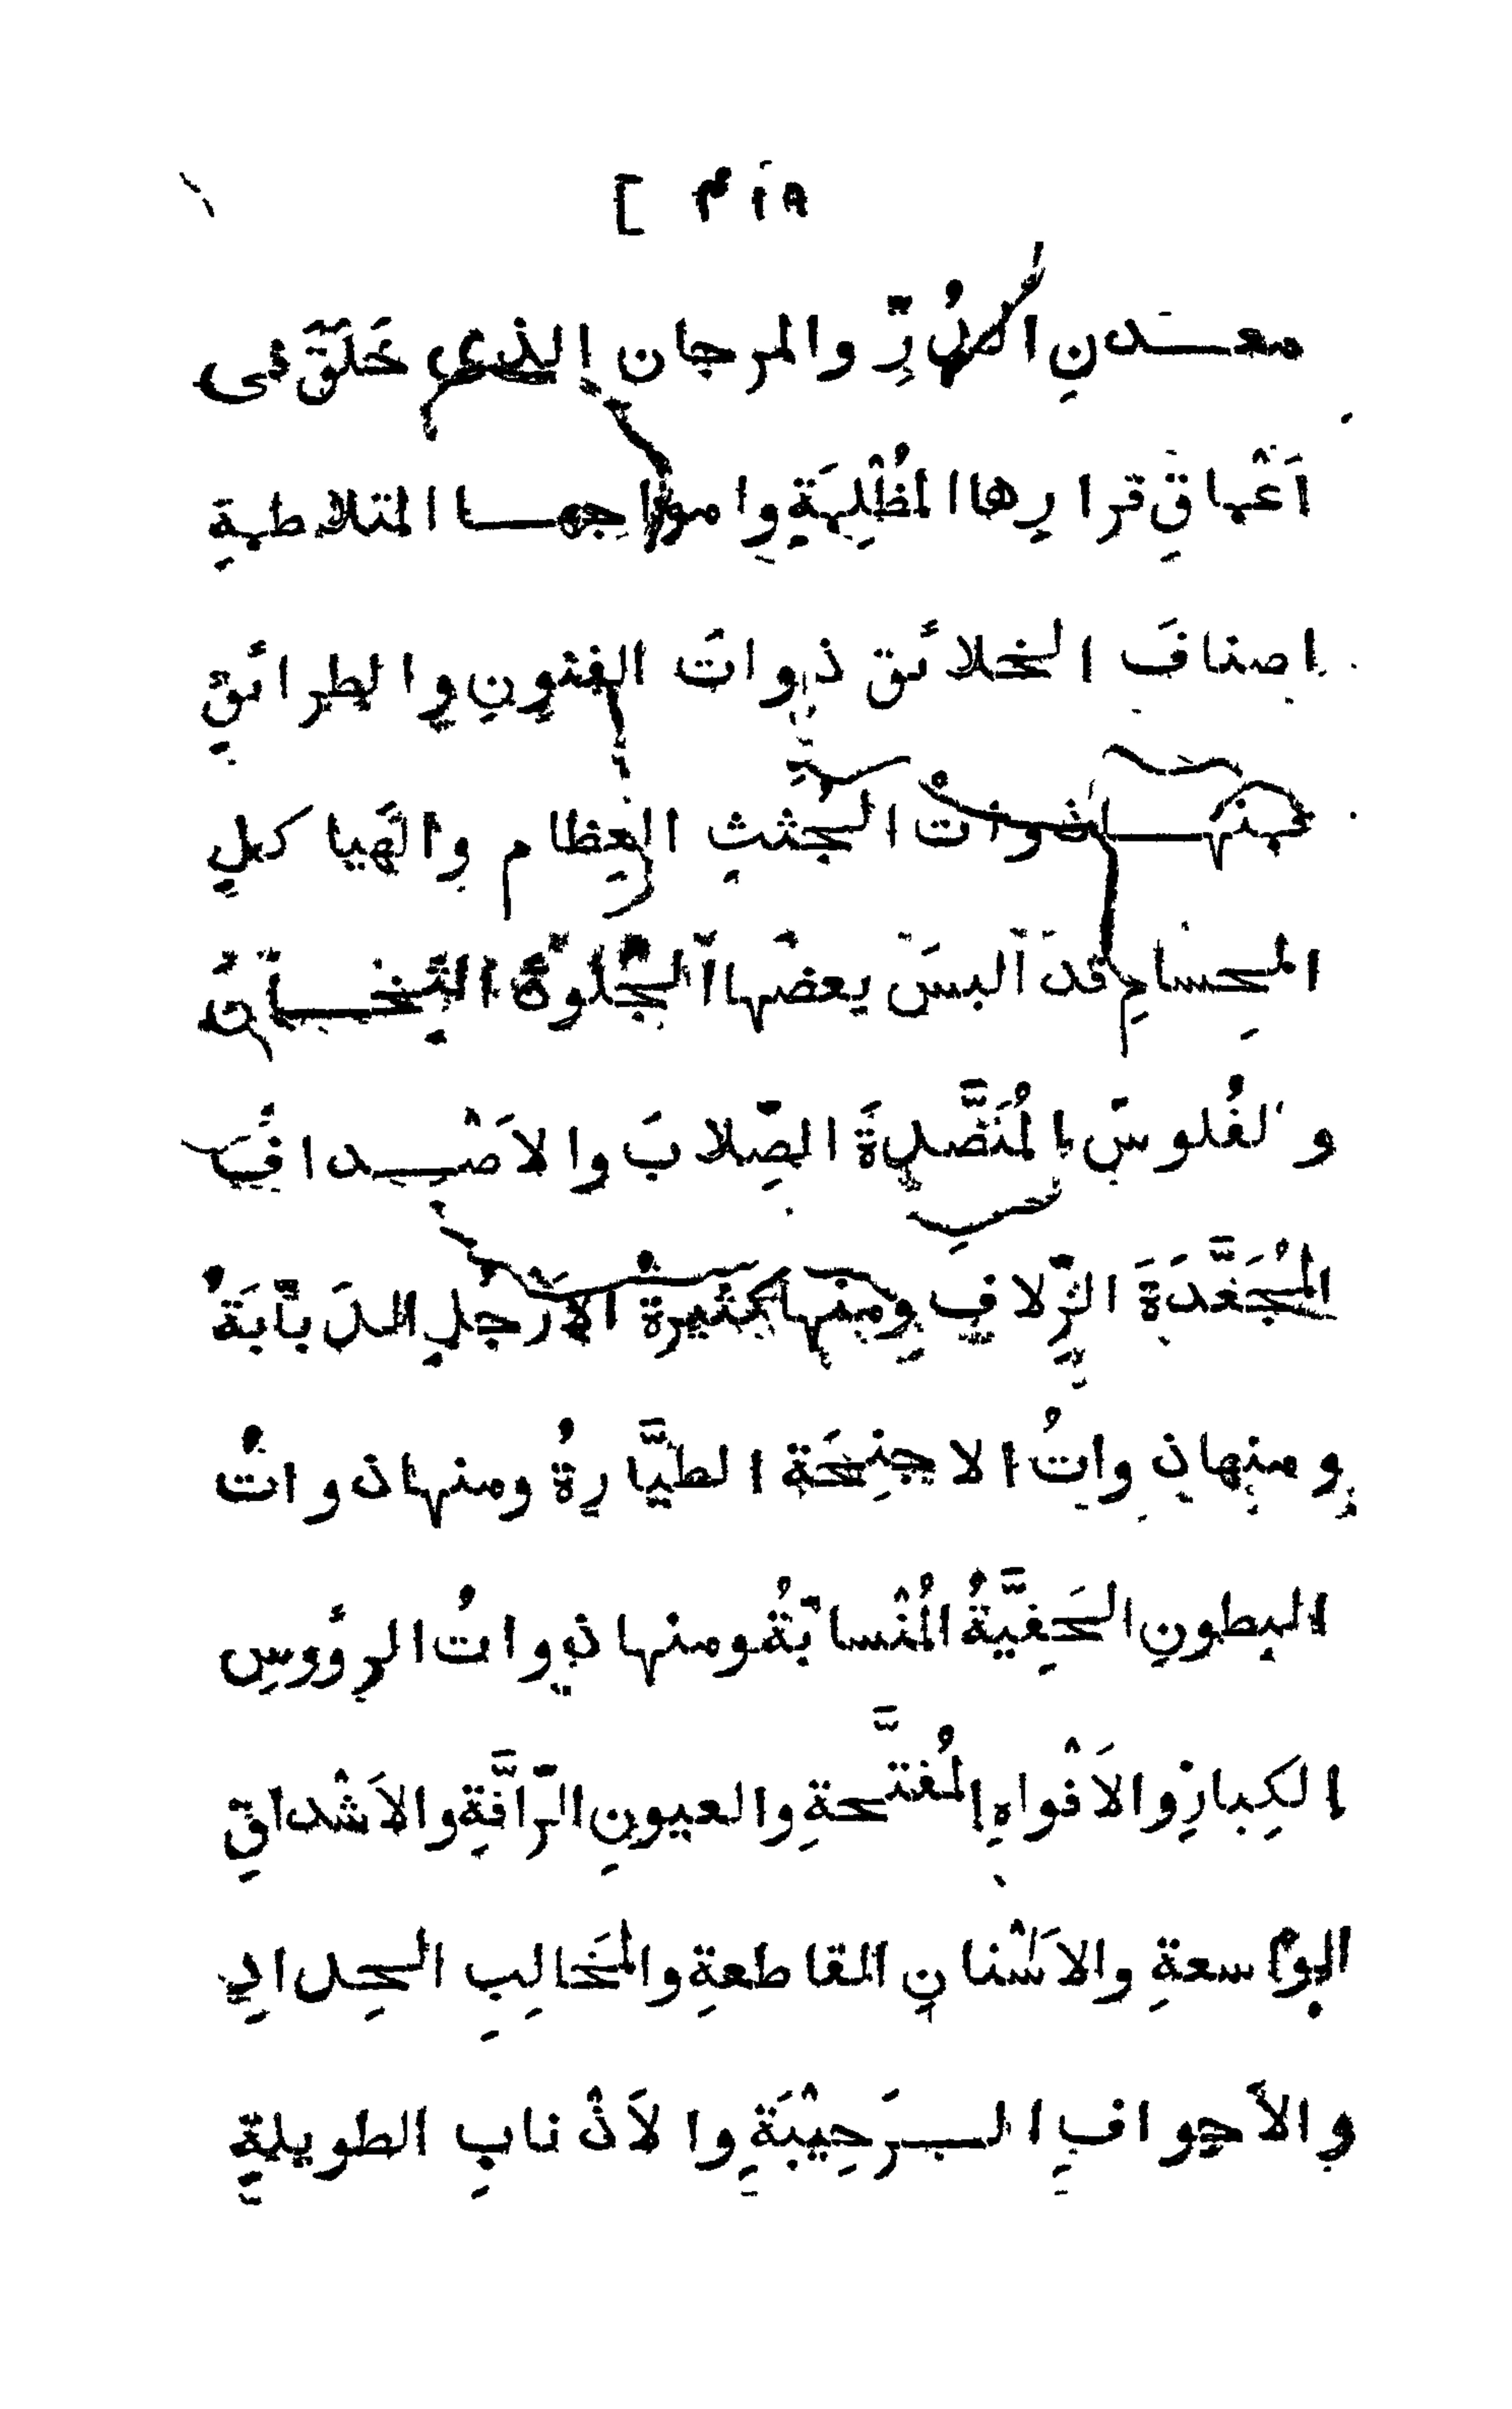 معدنِ الدُرِّ والمرجان الذي خَلَقَ في
اَعْماقِ قرارِها المُظْلِمَةِ وامواجها المتلاطمةِ
اصنافَ الخلائق ذواتَ الفنونِ والطرائقِ
فمنها ذواتُ الجُثثِ العِظامِ والهَياكلِ
الجِسامِ قد اَلبسَ بعضَها الجُلودَ الثِّخانَ
والفُلوسَ المُنَضَّدةَ الصِّلابَ والاَصْدافَ
المُجَعَّدَةَ الزِّلافِ ومنها كثيرةُ الاَرْجُلِ الدَبّابَةُ
ومنها ذواتُ الاجنِحَة الطيَّارةُ ومنها ذواتُ
البطونِ الحَفِيَّةُ المُنْسابَةُ ومنها ذواتُ الرؤوسِ
الكِبارِ والاَفْواهِ المُفتَّحةِ والعيونِ الزَّرافَّةِ والاَشْداقِ
الواسعةِ والاَسْنانِ القاطعةِ والمَخالِبِ الحِدادِ
والاَجوافِ الرَحِيْبَةِ والاَذْنابِ الطويلةِ